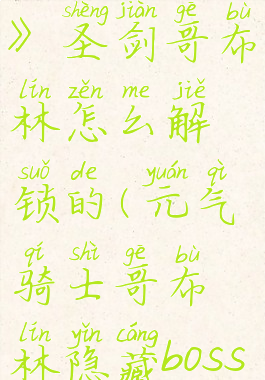 shèng jiàn gē bù
》 圣剑哥布
lín zěn me jiě
林怎么解
suǒ de yuán qì
锁的(元气
qí shì gē bù
骑士哥布
lín yǐn cáng
林隐藏boss